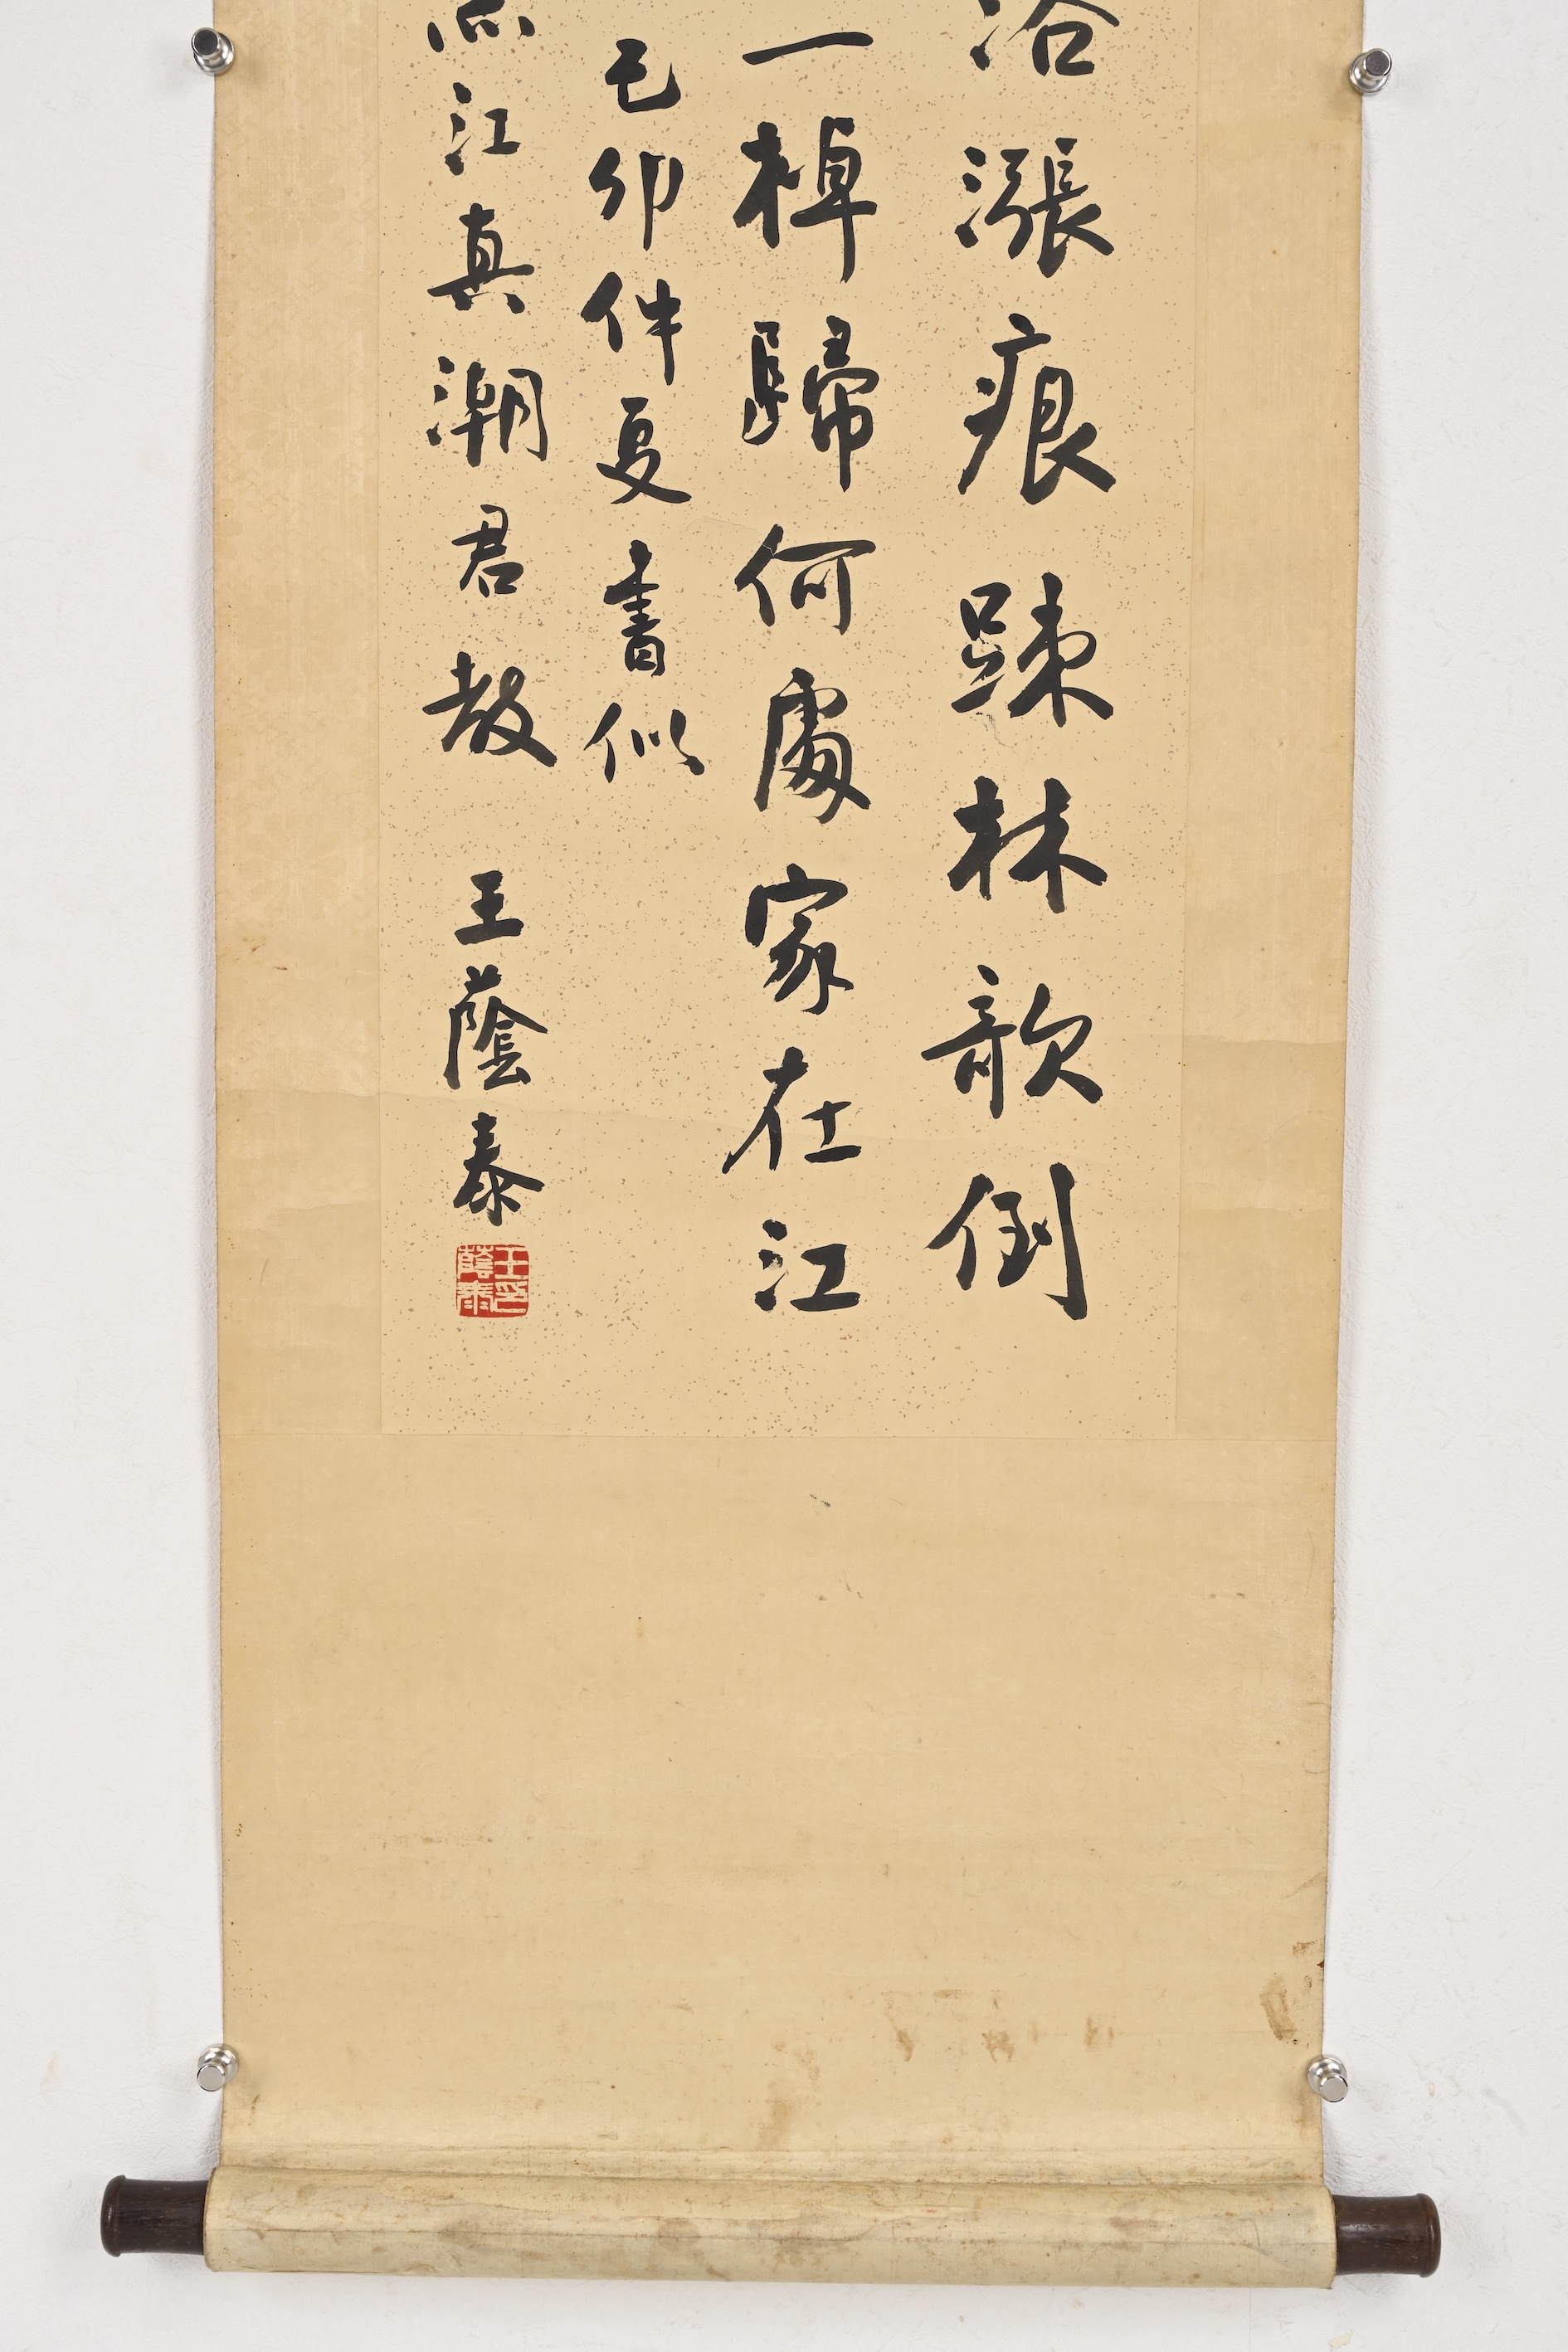 落漲痕踈林欹倒
一棹歸何處家在江
己卯仲夏書似
江真潮君教 王蔭泰
王印
蔭泰